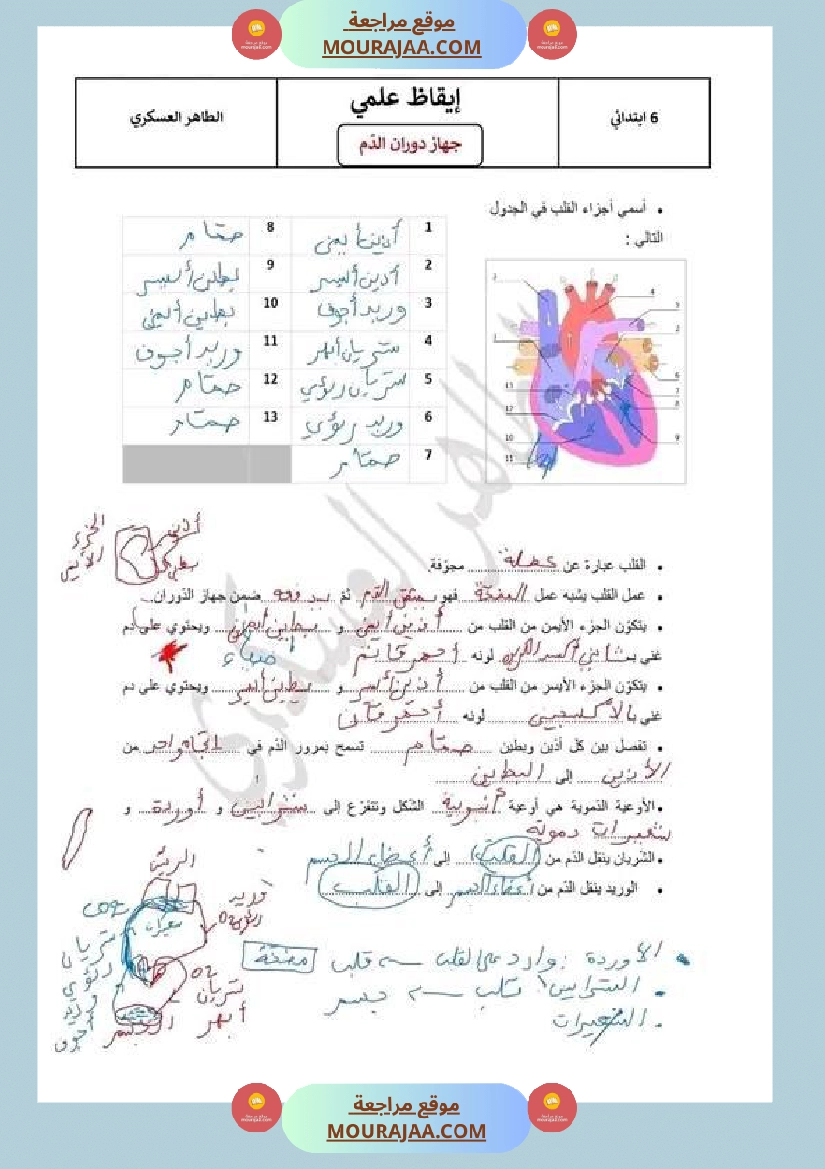 موقع مراجعة
MOURAJAA.COM
6 ابتدائي
إيقاظ علمي
جهاز دوران الدّم
الطاهر العسكري
• أسمي أجزاء القلب في الجدول
التالي :
1 أذين أيمن 8 صمّام
2 أذين أيسر 9 بطين أيسر
3 وريد أجوف 10 بطين أيمن
4 شريان أبهر 11 وريد أجوف
5 شريان رئوي 12 صمّام
6 وريد رئوي 13 صمّام
7 صمّام
الجزء الأيمن
أذين
بطين
• القلب عبارة عن عضلة مجوّفة.
• عمل القلب يشبه عمل المضخّة فهو يتلقى الدّم ثمّ يدفعه ضمن جهاز الدّوران.
• يتكوّن الجزء الأيمن من القلب من أذين أيمن و بطين أيمن ويحتوي على دم
غني بـ ثاني أكسيد الكربون لونه أحمر قاتم
• يتكوّن الجزء الأيسر من القلب من أذين أيسر و بطين أيسر ويحتوي على دم
غني بالأكسجين لونه أحمر قان
• تفصل بين كل أذين وبطين صمّام تسمح بمرور الدّم في اتجاه واحد من
الأذين إلى البطين
• الأوعية الدّموية هي أوعية أنبوبية الشكل وتتفرّع إلى شرايين و أوردة و
شعيرات دموية
• الشريان ينقل الدّم من القلب إلى أعضاء الجسم
• الوريد ينقل الدّم من أعضاء الجسم إلى القلب
• الأوردة : وارد على القلب ← قلب مضخة
• الشرايين قلب ← جسم
• الشعيرات
الرئتين
وريد رئوي
شريان رئوي
شريان أبهر
وريد أجوف
الجسم
موقع مراجعة
MOURAJAA.COM